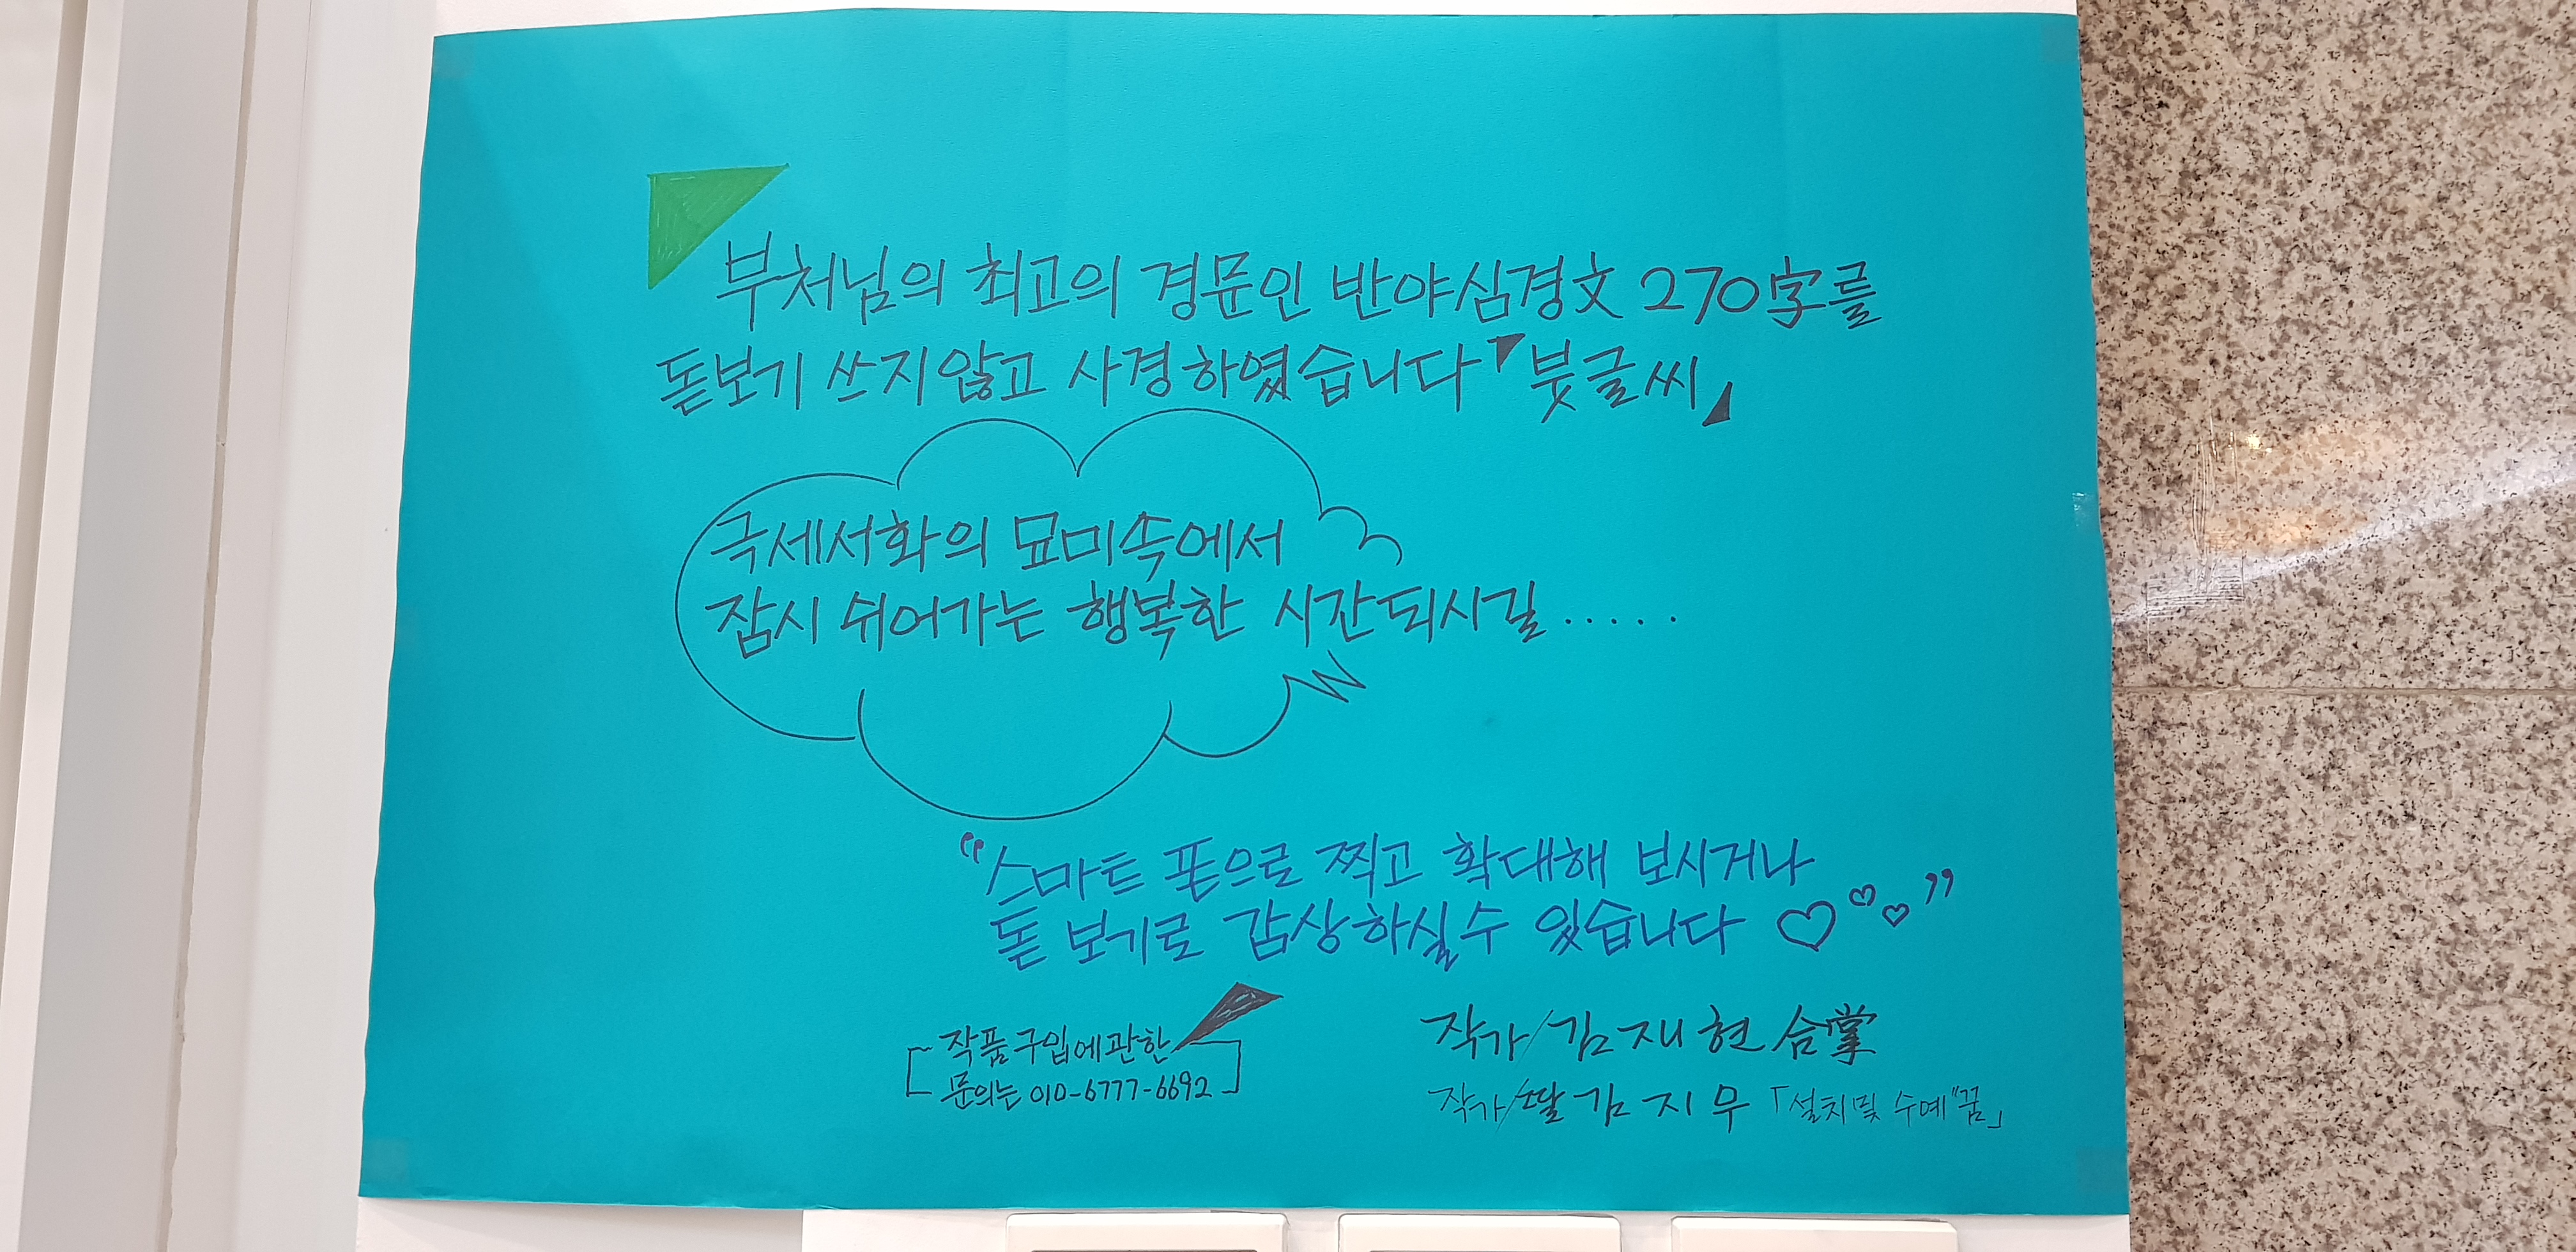 부처님의 최고의 경문인 반야심경文 270字를
돋보기 쓰지않고 사경하였습니다 「붓글씨」
극세서화의 묘미속에서
잠시 쉬어가는 행복한 시간되시길.....
“스마트 폰으로 찍고 확대해 보시거나
돋 보기로 감상하실수 있습니다 ♡♡♡”
작품구입에관한
문의는 010-6777-6692
작가/김재현 合掌
작가/딸 김지우 「설치및 수예"꿈」